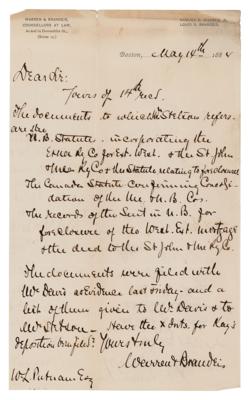 WARREN & BRANDEIS,
COUNSELLORS AT LAW,
SAMUEL D. WARREN, Jr.
LOUIS D. BRANDEIS.
Boston, May 14th 188
Dear Sir:
Yours of 14th recd.
The documents to which Stetson refers
are the
N.B. Statute incorporating the
Ry Co for Ext. West. & the St John
Ry Co & the Statute relating to foreclosure
The Canada Statute confirming Consoli-
dation of the Me & N.B. Cos.
The records of the Suit in N.B. for
foreclosure of the West. Ext. mortgage
& the deed to the St John & Me Ry Co.
The documents were filed with
Mr Davis as evidence last and a
list of them given to Mr. Davis & to
Mr Stetson. Have the for Ray's
deposition
Yours truly
Warren & Brandeis
W L Putnam Esq